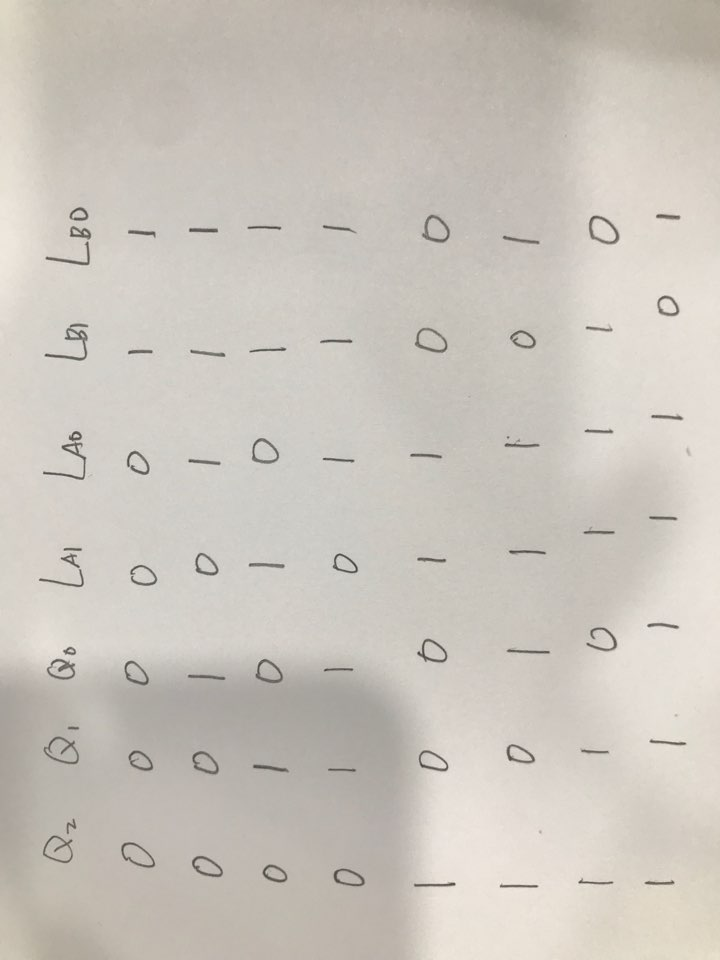 Q₂ Q₁ Q₀ L_A1 L_A0 L_B1 L_B0
0 0 0 0 0 1 1
0 0 1 0 1 1 1
0 1 0 1 0 1 1
0 1 1 0 1 1 1
1 0 0 1 1 0 0
1 0 1 1 1 0 1
1 1 0 1 1 1 0
1 1 1 1 1 0 1